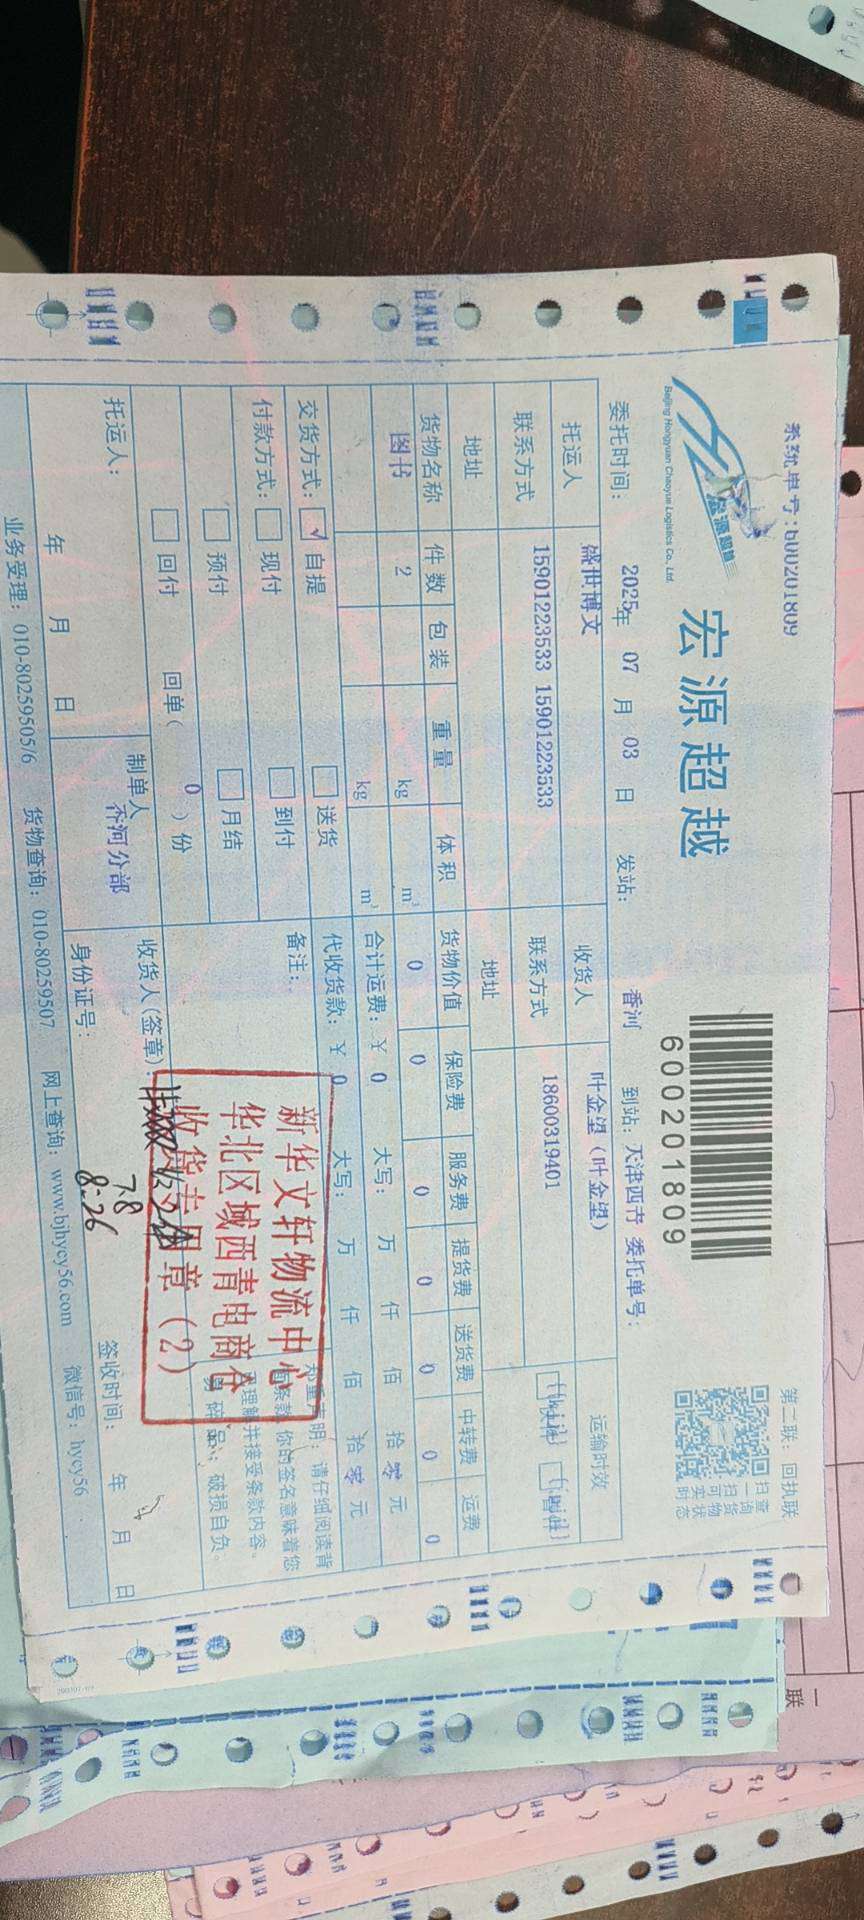 系统单号:600201809
第二联：回执联
宏源超越
宏源超越
Beijing Hongyuan Chaoyue Logistics Co., Ltd
600201809
扫一扫可实时
查询货物状态
委托时间： 2025年 07 月 03 日 发站： 香河 到站：天津西青 委托单号：
托运人 盛世博文 收货人 叶金望（叶金望） 运输时效
联系方式 15901223533 15901223533 联系方式 18600319401
地址 地址
货物名称 件数 包装 重量 体积 货物价值 保险费 服务费 提货费 送货费 中转费 运费
图书 2 kg m³ 0 0 0 0 0 0 0
kg m³ 合计运费：¥ 0 大写： 万 仟 佰 拾 零 元
交货方式： ✓ 自提 送货 代收货款：¥ 0 大写： 万 仟 佰 拾 零 元
付款方式： 现付 到付 备注：
预付 月结
回付 回单（ 0 ）份
郑重声明：请仔细阅读背
条款，你的签名意味着您
理解并接受条款内容。
易碎品：破损自负。
新华文轩物流中心
华北区域西青电商仓
收货专用章（2）
托运人： 制单人 香河分部 收货人(签章)：
7.8
8:26
年 月 日 身份证号： 签收时间： 年 月 日
业务受理：010-80259505/6 货物查询：010-80259507 网上查询：www.bjhycy56.com 微信号：hycy56
联